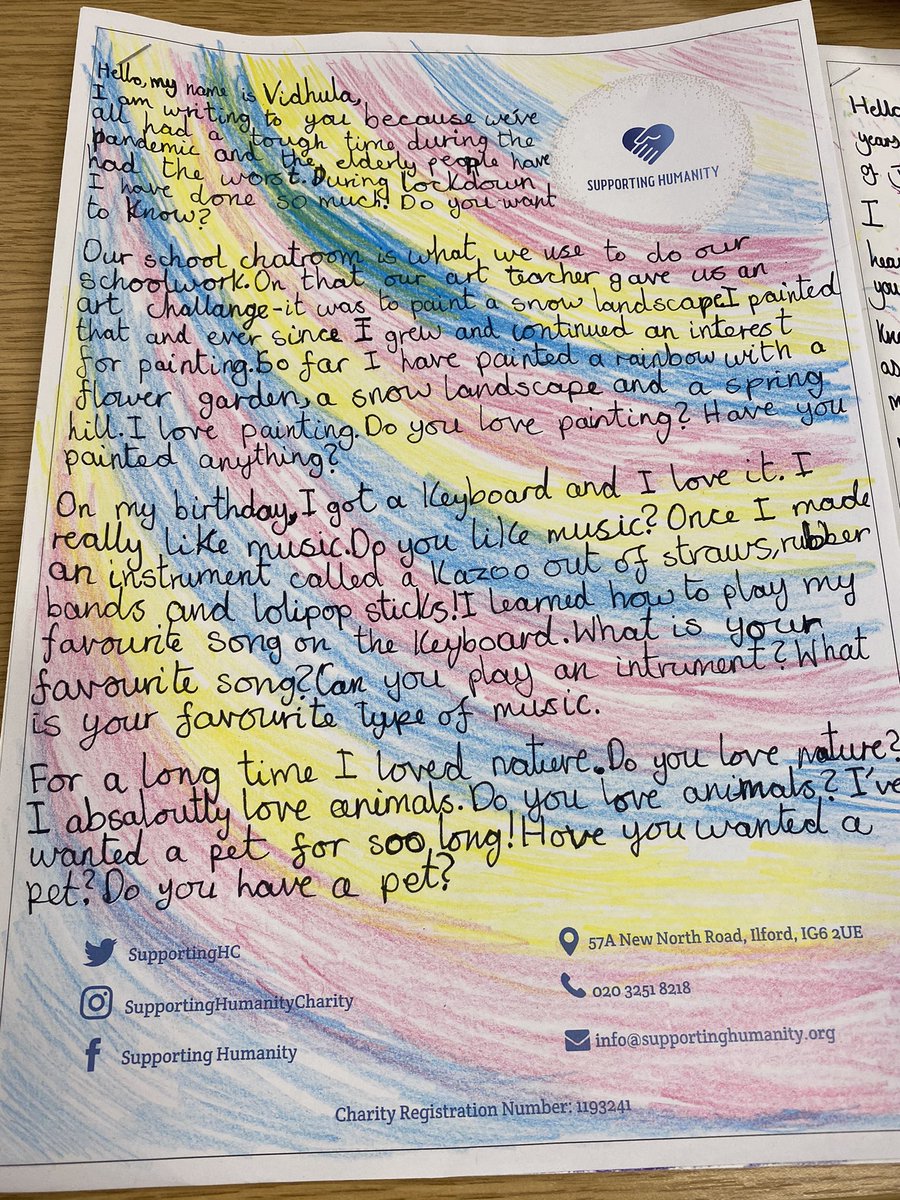 Hello, my name is Vidhula,
I am writing to you because we've
all had a tough time during the
pandemic and the elderly people have
had the worst. During lockdown
I have done so much! Do you want
to know?
SUPPORTING HUMANITY
Our school chatroom is what we use to do our
schoolwork. On that our art teacher gave us an
art challange - it was to paint a snow landscape. I painted
that and ever since I grew and continued an interest
for painting. So far I have painted a rainbow with a
flower garden, a snow landscape and a spring
hill. I love painting. Do you love painting? Have you
painted anything?
On my birthday, I got a Keyboard and I love it. I
really like music. Do you like music? Once I made
an instrument called a Kazoo out of straws, rubber
bands and lolipop sticks! I learned how to play my
favourite song on the Keyboard. What is your
favourite song? Can you play an intrument? What
is your favourite type of music.
For a long time I loved nature. Do you love nature?
I absaloutly love animals. Do you love animals? I've
wanted a pet for soo long! Have you wanted a
pet? Do you have a pet?
SupportingHC
SupportingHumanityCharity
Supporting Humanity
57A New North Road, Ilford, IG6 2UE
020 3251 8218
info@supportinghumanity.org
Charity Registration Number: 1193241
Hello
years
of
I
hear
you
Kno
as
m